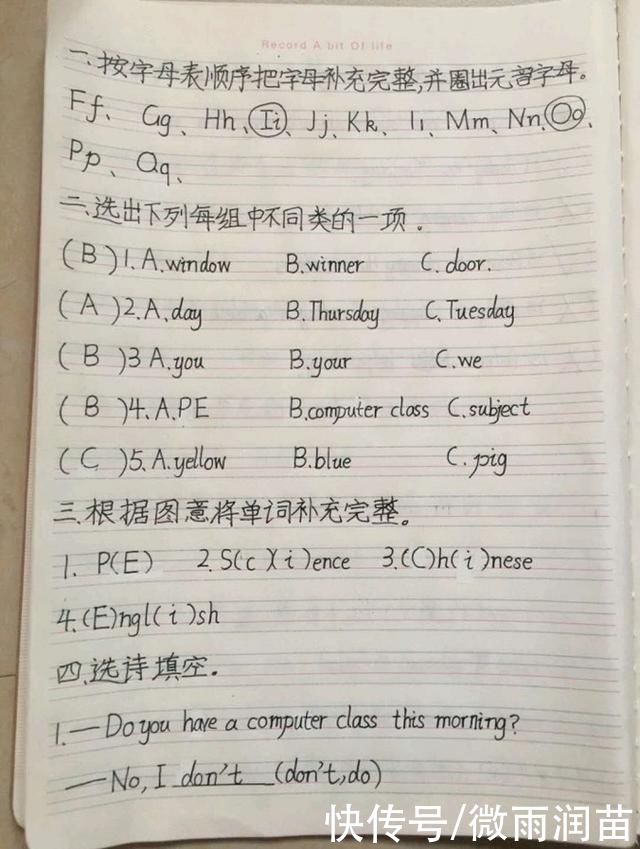 Record A bit Of life
一、按字母表顺序把字母补充完整,并圈出元音字母。
Ff、Gg、Hh、Ii、Jj、Kk、Ll、Mm、Nn、Oo、
Pp、Qq、
二、选出下列每组中不同类的一项。
(B)1.A.window B.winner C.door.
(A)2.A.day B.Thursday C.Tuesday
(B)3 A.you B.your C.we
(B)4.A.PE B.computer class C.subject
(C)5.A.yellow B.blue C.pig
三、根据图意将单词补充完整。
1. P(E) 2.S(c)(i)ence 3.(C)h(i)nese
4.(E)ngl(i)sh
四、选诗填空.
1.—Do you have a computer class this morning?
—No, I don't (don't,do)
快传号/微雨润苗